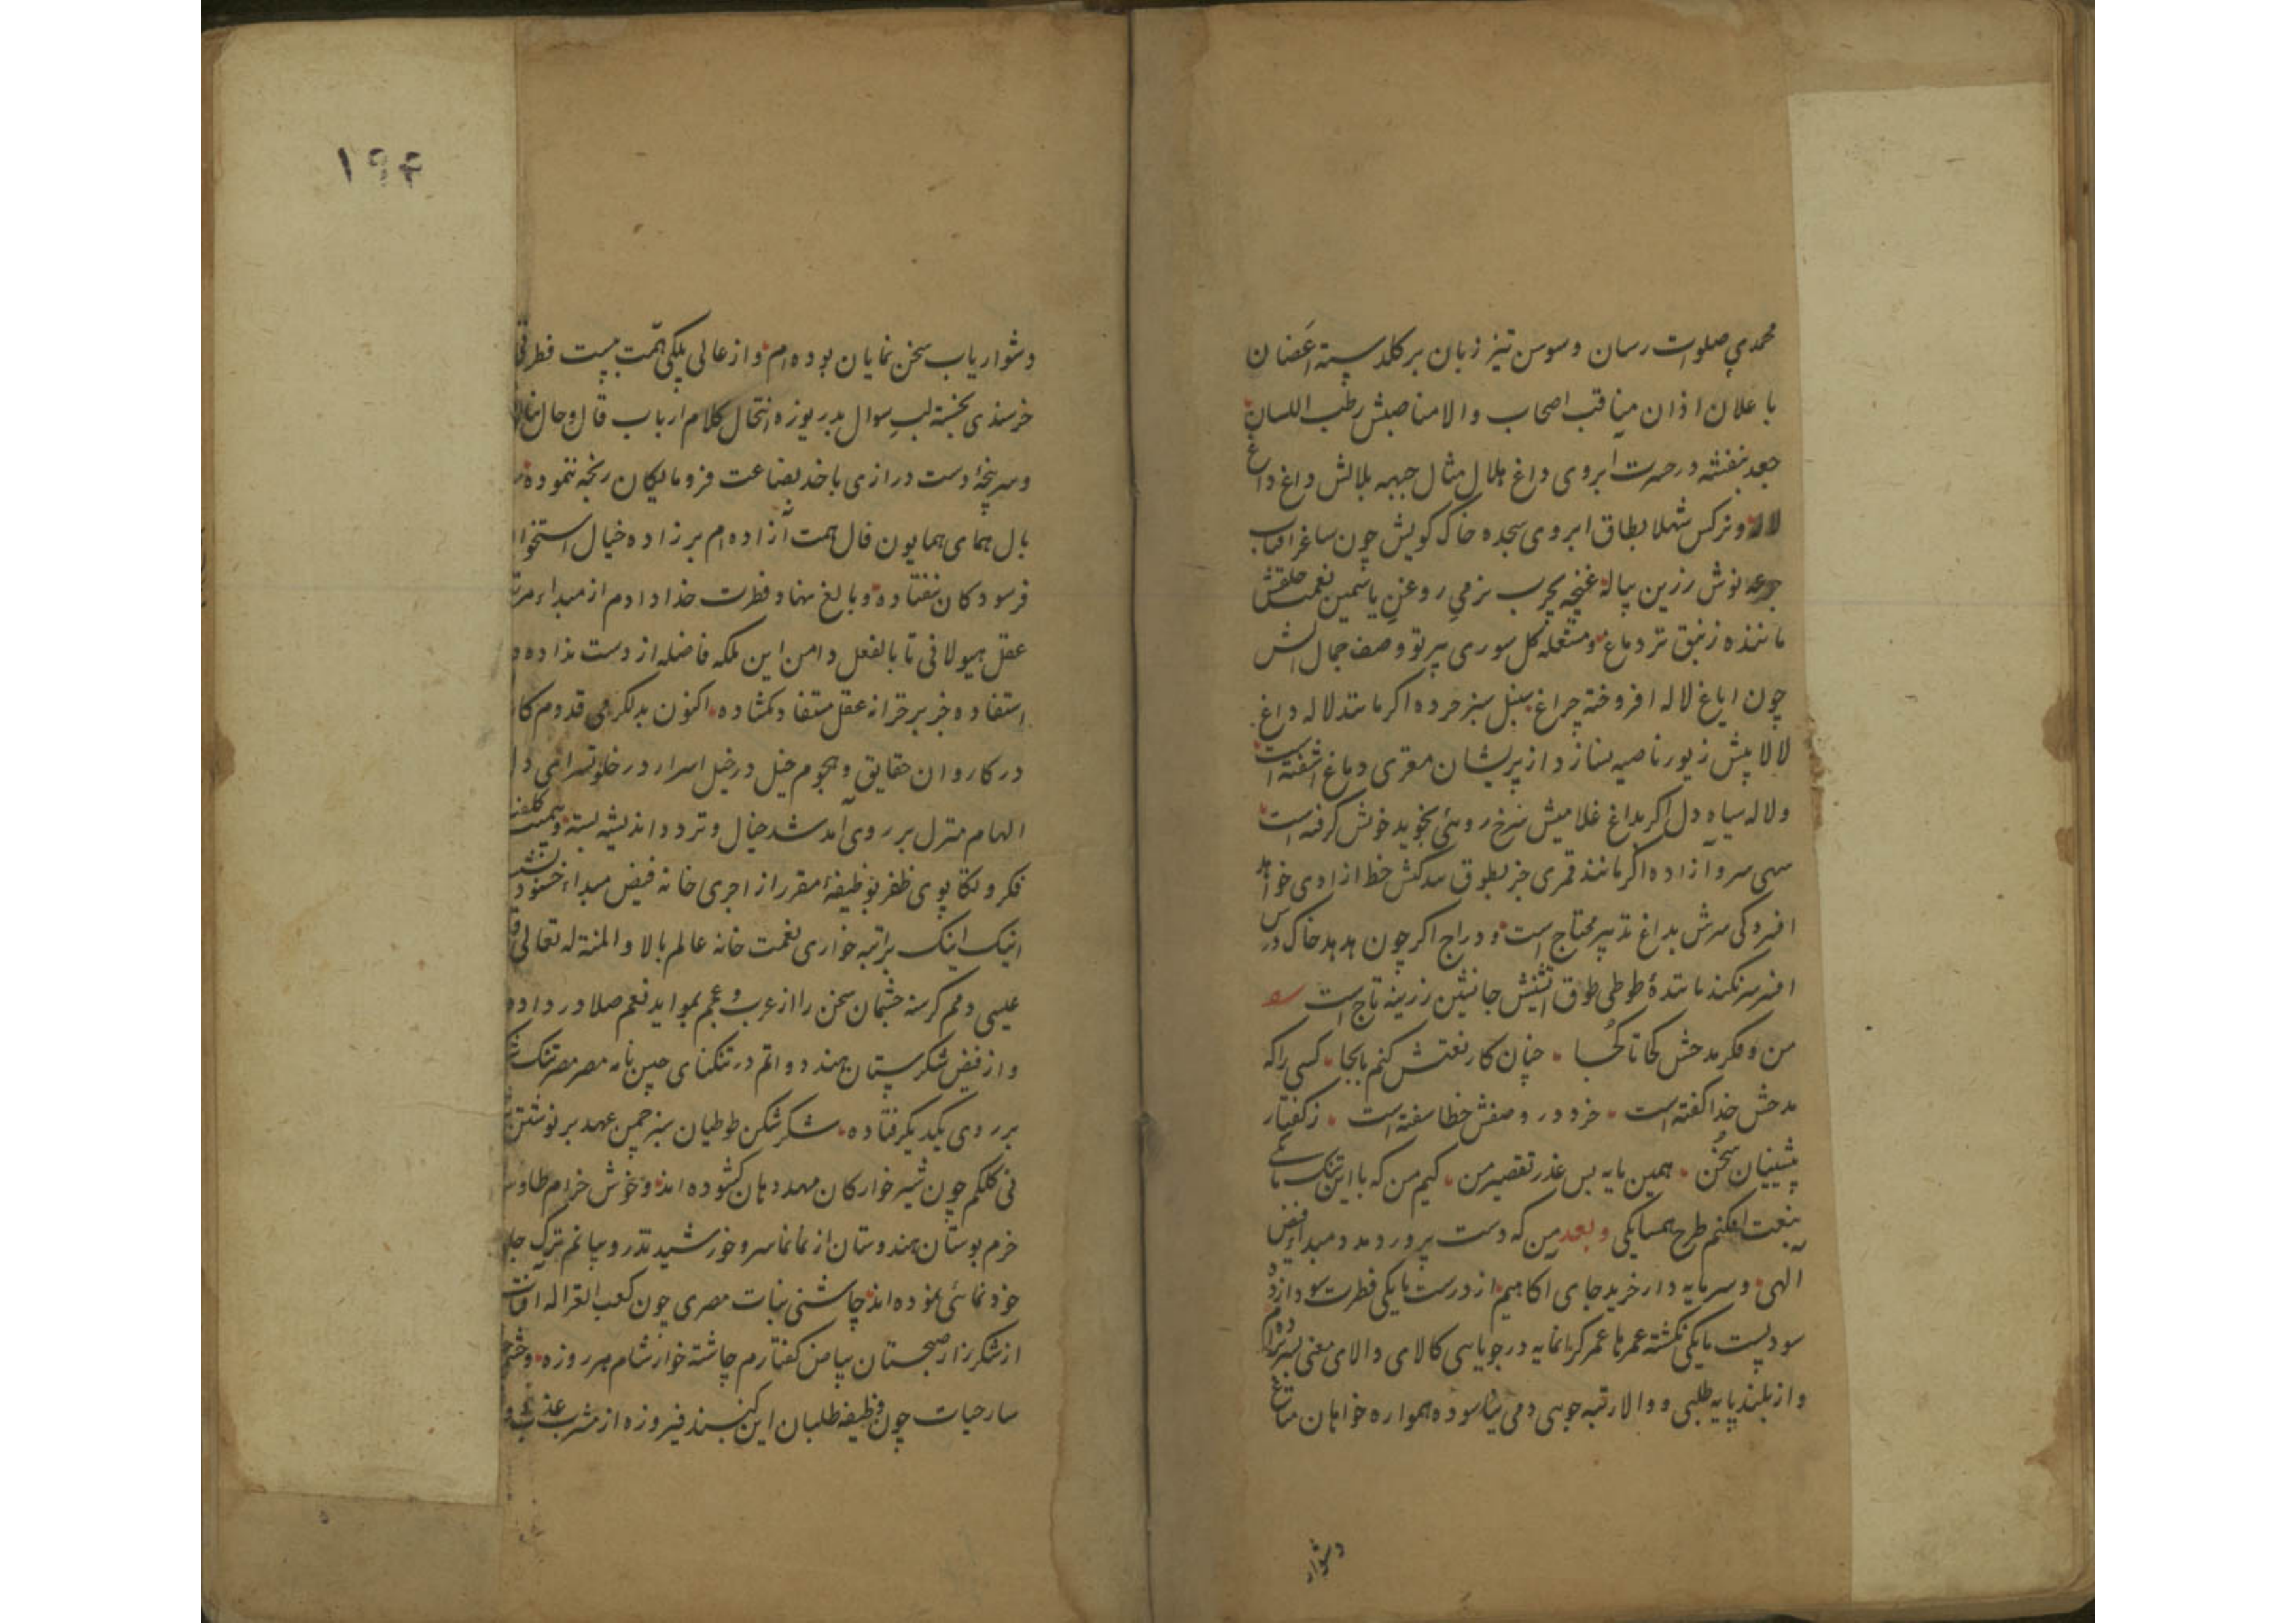 محمدی صلوات رسان و سوسن تیز زبان بر کلدسته اغصان
با علان اذان مناقب اصحاب والا مناصبش رطب اللسان
جعد بنفشه در حسرت ابروی داغ هلال مثال جبهه بلالش داغ داغ
لاله و نرکس شهلا بطاق ابروی سجده خاک کویش چون ساغر افتاب
جرعه نوش زرین پیاله غنچه بچرب نرمی روغن یاسمین نعمت خلقش
مانده زنبق تر دماغ و مشعله کل سوری بپرتو وصف جمال اش
چون ایاغ لاله افروخته چراغ سنبل سنبز خرده اکر مانند لاله داغ
لالا پیش زیور ناصیه نسازد از پریشان مغزی دماغ اشفته است
ولاله سیاه دل اکر بداغ غلامیش سرخ روئی بخوید خویش کرفته است
سهی سرو آزاده اکر مانند قمری جز بطوق بندکیش خط ازادی خواهد
افسردکی سرش بداغ تدبیر محتاج است و دراج اکر چون هدهد خاک درش
افسر سر نکند مانندهٔ طوطی طوق اتشینش جانشین زرینه تاج است
من و فکر مدحش کجا تا کجا چنان کار نعتش کنم بابجا کسی را که
مدحش خدا کفته است خرد در وصفش خطا سفته است ز کفتار
پیشینیان سخن همین مایه بس عذر تقصیر من کیم من که با این تنک مایکی
بنعت افکنم طرح همسایکی وبعد من که دست پرورد مدد مبداء فیض
الهی و سرمایه دار خرید جای اکاهیم از درست مایکی فطرت سودازده
سود پست مایکی نکشته عمرها عمر کرانمایه در جویایی کالای والای معنی بسر برده ام
و از بلند پایه طلبی و والا رتبه جویی دمی نیاسوده همواره خواهان متاع
دشوار
۱۹۴
دشوار یاب سخن نمایان بوده ام و از عالی پلکی همت بپست فطرتی
خرسندی نجسته لب سوال بدریوزه انتحال کلام ارباب قال و حال
و سر پنجهٔ دست درازی باخذ بضاعت فرومایکان رنجه ننموده
بال همای همایون فال همت آزاده ام بر زاده خیال استخوان
فرسودکان نیفتاده و بالغ نهاد فطرت خدا دادم از مبداء مرتبه
عقل هیولانی تا بالفعل دامن این ملکه فاضله از دست نداده و
استفاده جز بر خزانه عقل مستفاد نکشاده اکنون بدلکرمی قدوم کاروان
در کاروان حقایق و هجوم خیل در خیل اسرار در خلوتسرای دل
الهام منزل بر روی آمد شد خیال و تردد اندیشه بسته
فکر و تکاپوی ظفر بوظیفهٔ مقرر از اجری خانه فیض مبداء خشنود
اینک اینک براتبه خواری نعمت خانه عالم بالا و المنة له تعالی
عیسی دمم کرسنه چشمان سخن را از عرب و عجم بموایدنعم صلا در داده
و از فیض شکرستان هند دواتم در تنکنای جیب نامه مصر مصر تنک شکر
بر روی یکدیکر فتاده شکر شکن طوطیان سبز چمن عهد بر نوشتن
نی کلکم چون شیر خوارکان مهد دهان کشوده اند و خوش خرام طاوس
خرم بوستان هندوستان از نمانما سرو خورشید تدرو بیانم ترک
خود نمائی نموده اند چاشنی نبات مصری چون کعب الغزاله افتاب
از شکرزار صبحستان بیاض کفتارم چاشته خوار شام هر روزه
سار حیات چون وظیفه طلبان این کنبد فیروزه از مشرب